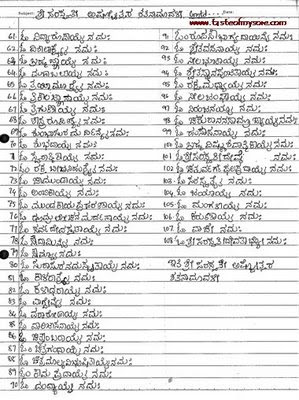 www.tasteofmysore.com
ಶ್ರೀ ಸರಸ್ವತೀ ಅಷ್ಟೋತ್ತರ ಶತನಾಮಾವಳಿ contd...
61 ಓಂ ವಿದ್ಯಾರೂಪಾಯೈ ನಮಃ
62 ಓಂ ವಿಶಾಲಾಕ್ಷ್ಯೈ ನಮಃ
63 ಓಂ ನಮಃ
64 ಓಂ ಮಹಾಫಲಾಯೈ ನಮಃ
65 ಓಂ ತ್ರಯೀಮೂರ್ತ್ಯೈ ನಮಃ
66 ಓಂ ತ್ರಿಕಾಲಜ್ಞಾಯೈ ನಮಃ
67 ಓಂ ತ್ರಿಗುಣಾಯೈ ನಮಃ
68 ಓಂ ಶಾಸ್ತ್ರರೂಪಿಣ್ಯೈ ನಮಃ
69 ಓಂ ನಮಃ
70 ಓಂ ಶುಭದಾಯೈ ನಮಃ
71 ಓಂ ಸ್ವರಾತ್ಮಿಕಾಯೈ ನಮಃ
72 ಓಂ ರಕ್ತ ಬೀಜನಿಹಂತ್ರ್ಯೈ ನಮಃ
73 ಓಂ ಚಾಮುಂಡಾಯೈ ನಮಃ
74 ಓಂ ಅಂಬಿಕಾಯೈ ನಮಃ
75 ಓಂ ಮುಂಡಕಾಯಪ್ರಹರಣಾಯೈ ನಮಃ
76 ಓಂ ಧೂಮ್ರಲೋಚನಮರ್ದನಾಯೈ ನಮಃ
77 ಓಂ ಸರ್ವದೇವಸ್ತುತಾಯೈ ನಮಃ
78 ಓಂ ನಮಃ
79 ಓಂ ಸೌಮ್ಯಾಯೈ ನಮಃ
80 ಓಂ ಸುರಾಸುರನಮಸ್ಕೃತಾಯೈ ನಮಃ
81 ಓಂ ಕಾಳರಾತ್ರ್ಯೈ ನಮಃ
82 ಓಂ ಕಳಾಧಾರಾಯೈ ನಮಃ
83 ಓಂ ವಾಗ್ದೇವ್ಯೈ ನಮಃ
84 ಓಂ ವರಾರೋಹಾಯೈ ನಮಃ
85 ಓಂ ವಾರಿಜಾಸನಾಯೈ ನಮಃ
86 ಓಂ ಚಿತ್ರಾಂಬರಾಯೈ ನಮಃ
87 ಓಂ ಚಿತ್ರಗಂಧಾಯೈ ನಮಃ
88 ಓಂ ಚಿತ್ರಮಾಲ್ಯವಿಭೂಷಿತಾಯೈ ನಮಃ
89 ಓಂ ಕಾಮಪ್ರದಾಯೈ ನಮಃ
90 ಓಂ ವಂದ್ಯಾಯೈ ನಮಃ
91 ಓಂ ರೂಪಸೌಭಾಗ್ಯದಾಯಿನ್ಯೈ ನಮಃ
92 ಓಂ ಶ್ವೇತಾಸನಾಯೈ ನಮಃ
93 ಓಂ ನೀಲಭುಜಾಯೈ ನಮಃ
94 ಓಂ ನಮಃ
95 ಓಂ ರಕ್ತಮಧ್ಯಾಯೈ ನಮಃ
96 ಓಂ ನೀಲಜಂಘಾಯೈ ನಮಃ
97 ಓಂ ನಿರಂಜನಾಯೈ ನಮಃ
98 ಓಂ ಚತುರಾನನಸಾಮ್ರಾಜ್ಯಾಯೈ ನಮಃ
99 ಓಂ ಹಂಸಾಸನಾಯೈ ನಮಃ
100 ಓಂ ಬ್ರಹ್ಮ ವಿಷ್ಣುಶಿವಾತ್ಮಿಕಾಯೈ ನಮಃ
101 ಓಂ ಶ್ರೀ ಸರಸ್ವತೀದೇವ್ಯೈ ನಮಃ
102 ಓಂ ಚತುರ್ವರ್ಗಫಲಪ್ರದಾಯೈ ನಮಃ
103 ಓಂ ಸರಸ್ವತ್ಯೈ ನಮಃ
104 ಓಂ ಜಯಾಯೈ ನಮಃ
105 ಓಂ ಮಂಗಳಾಯೈ ನಮಃ
106 ಓಂ ಕರುಣಾಯೈ ನಮಃ
107 ಓಂ ವಾಣ್ಯೈ ನಮಃ
108 ಓಂ ಶ್ರೀ ಸರಸ್ವತೀದೇವತಾಭ್ಯೋ ನಮಃ
ಇತಿ ಶ್ರೀ ಸರಸ್ವತೀ ಅಷ್ಟೋತ್ತರ
ಶತನಾಮಾವಳಿ